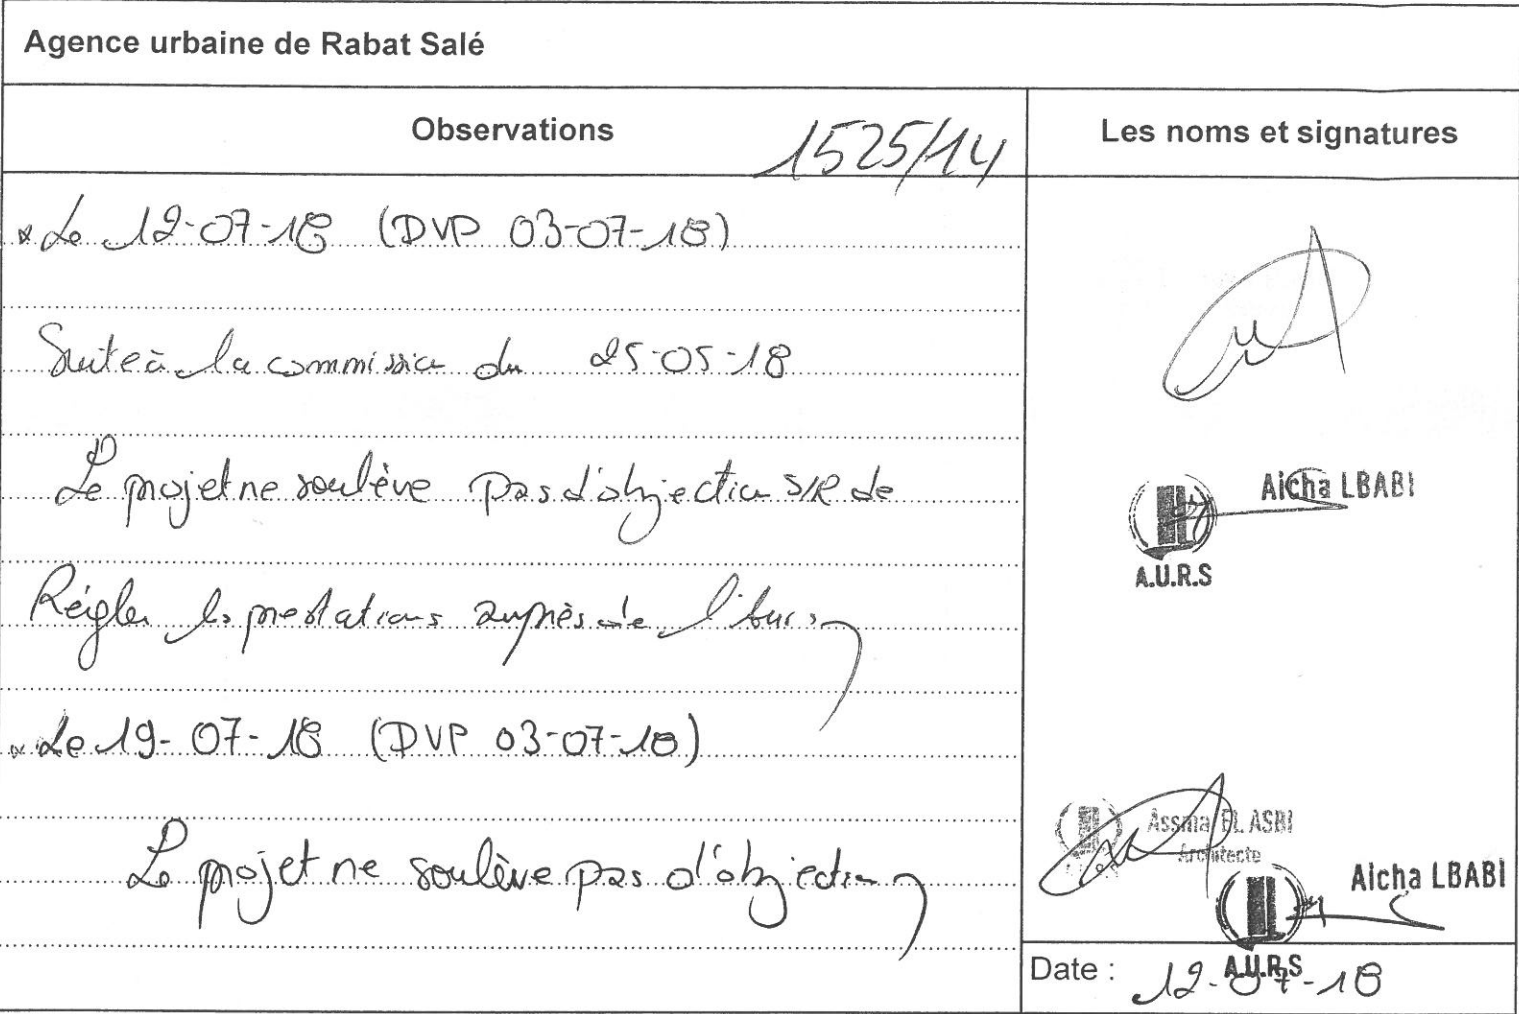 Agence urbaine de Rabat Salé
Observations
1525/14
Les noms et signatures
* Le 12-07-18 (DVP 03-07-18)
Suite à la commission du 25-05-18
Le projet ne soulève pas d'objection S/R de
Régler les prestations auprès de
* Le 19-07-18 (DVP 03-07-18)
Le projet ne soulève pas d'objection
Aicha LBABI
A.U.R.S
Assma EL ASBI
Architecte
Aicha LBABI
A.U.R.S
Date : 12-07-18